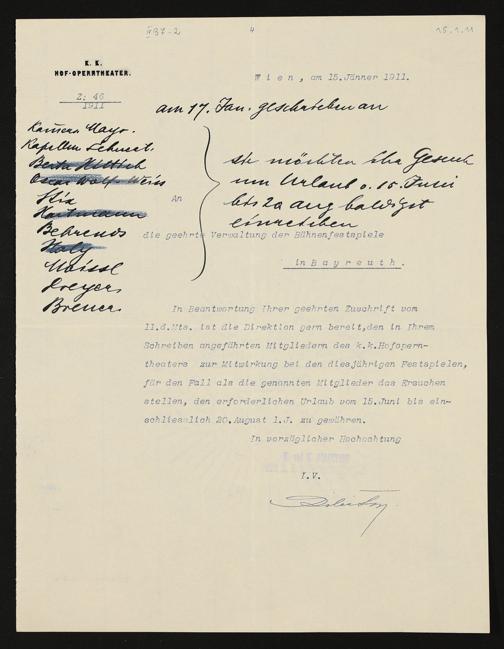 4
15.1.11
K. K.
HOF-OPERNTHEATER.
Z: 46
1911
Wien, am 15.Jänner 1911.
am 17. Jan. geschrieben an
Kammers. Mayr.
Bertha Kittel
Oscar Wolf Weiss
Stix
Hartmann
Behrends
Haly
Dreyer
Breuer
sie möchten ihr Gesuch
um Urlaub v. 15 Juni
bis 20 Aug baldigst
einreichen
An
die geehrte Verwaltung der Bühnenfestspiele
in Bayreuth.
In Beantwortung Ihrer geehrten Zuschrift vom
11.d.Mts. ist die Direktion gern bereit,den in Ihrem
Schreiben angeführten Mitgliedern des k.k.Hofopern-
theaters zur Mitwirkung bei den diesjährigen Festspielen,
für den Fall als die genannten Mitglieder das Ersuchen
stellen, den erforderlichen Urlaub vom 15.Juni bis ein-
schliesslich 20.August l.J. zu gewähren.
In vorzüglicher Hochachtung
I.V.